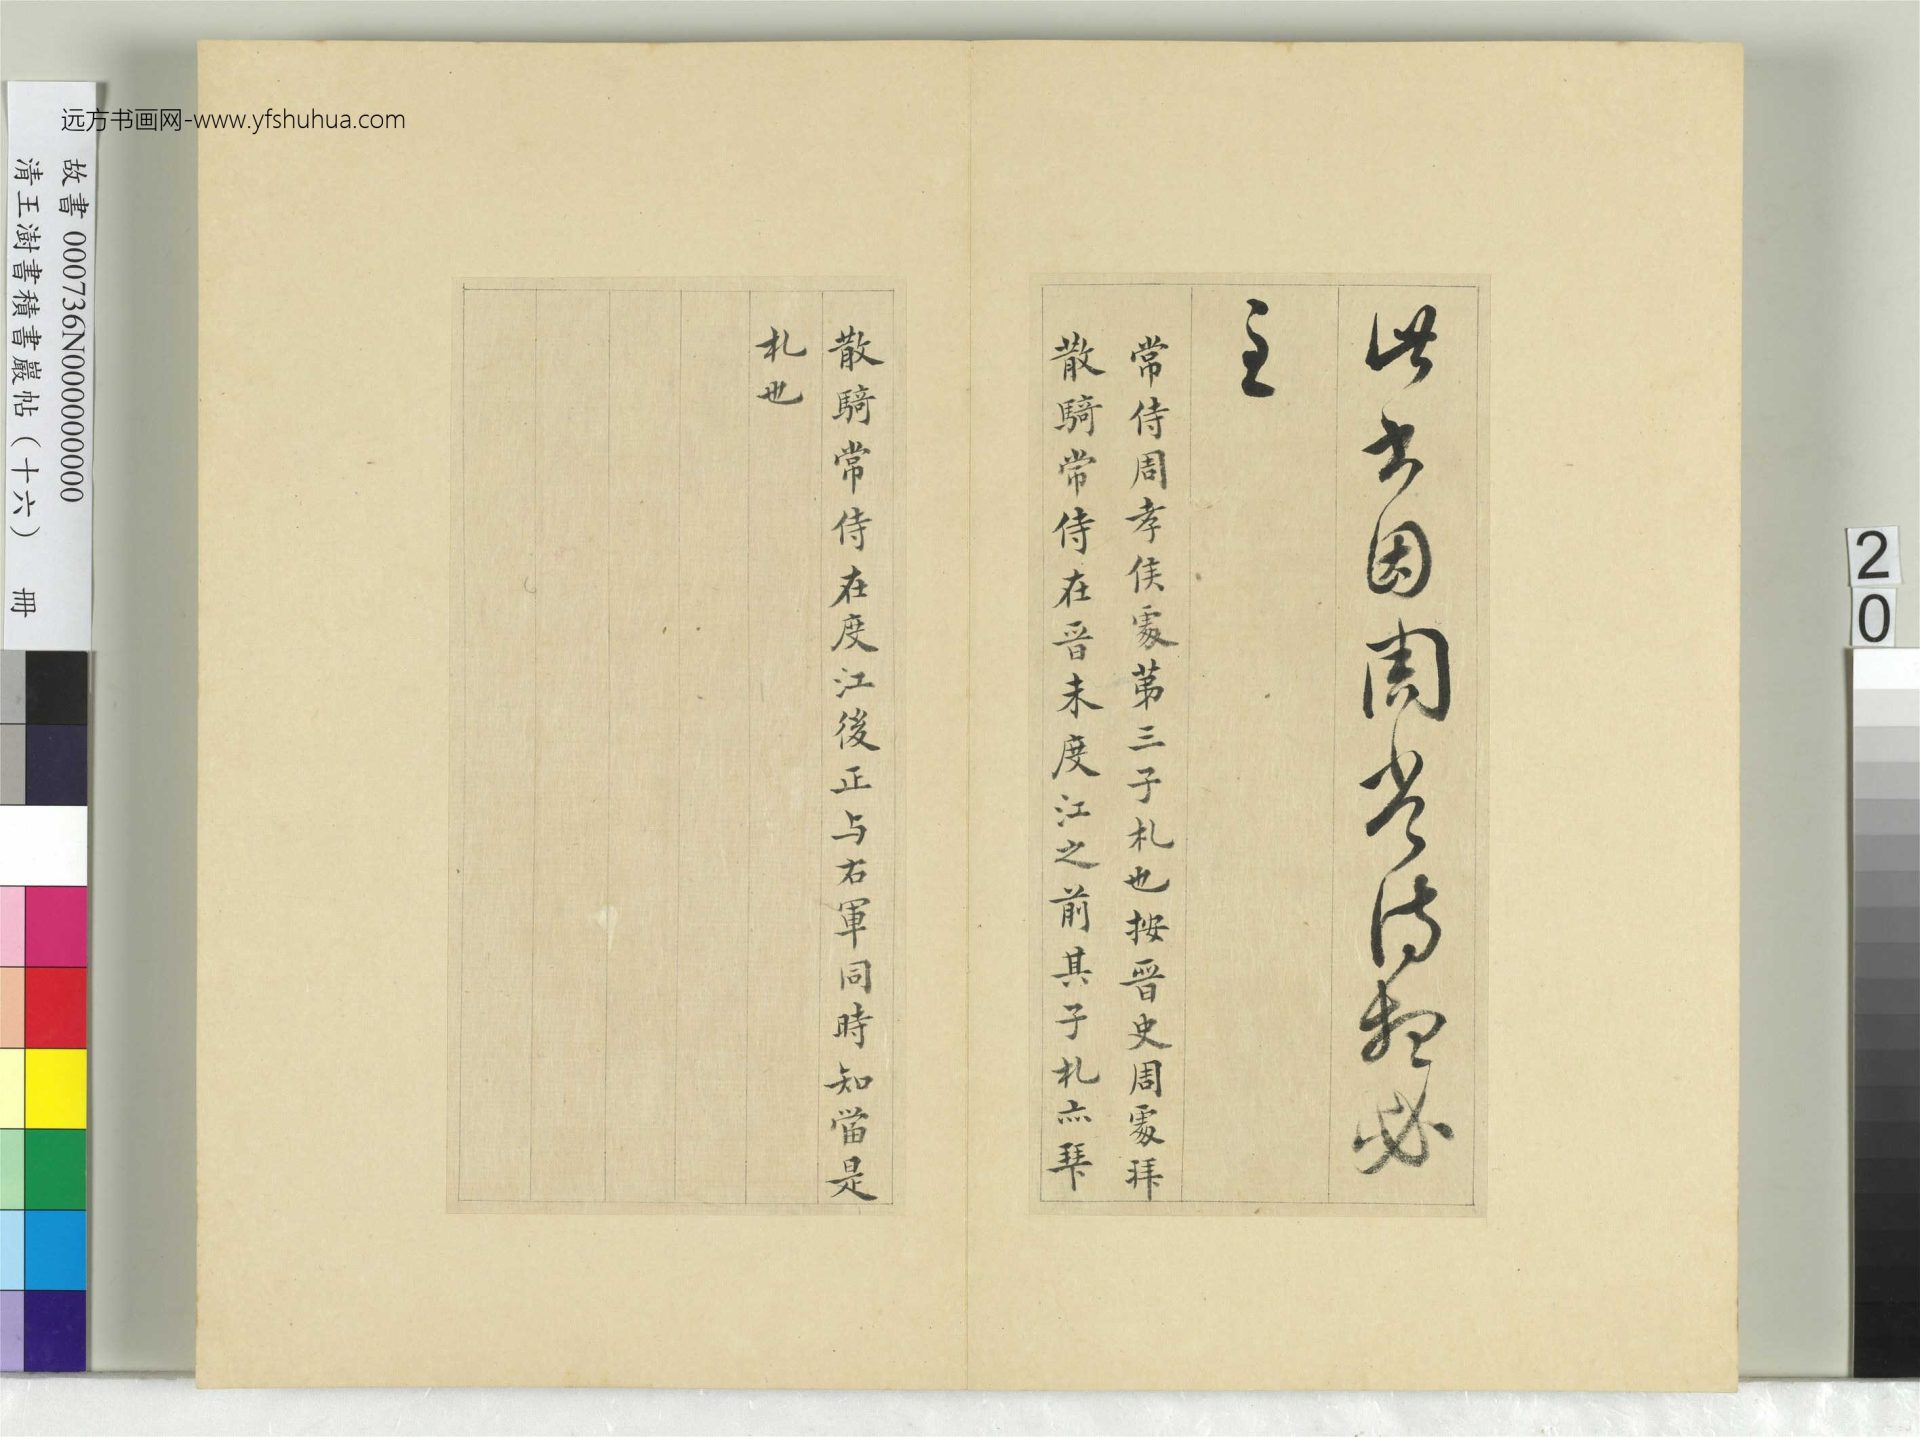 此書因周常侍想必
至
常侍周孝侯處第三子札也按晉史周處拜
散騎常侍在晉未度江之前其子札亦拜
散騎常侍在度江後正与右軍同時知當是
札也
远方书画网-www.yfshuhua.com
故書 000736N000000000
清王澍書積書巖帖（十六） 冊
20